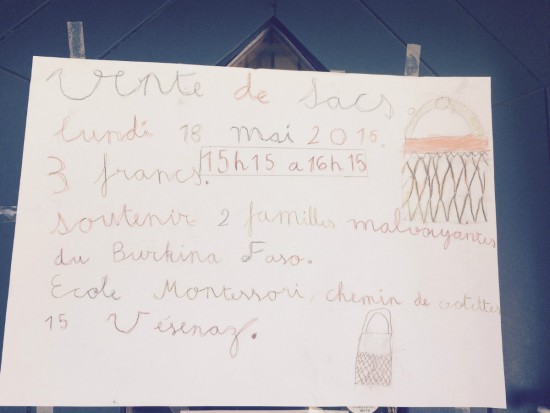 Vente de sacs
lundi 18 mai 2015.
3 francs. 15h15 a 16h15
soutenir 2 familles malvoyantes
du Burkina Faso.
Ecole Montessori, chemin de
15 Vésenaz.